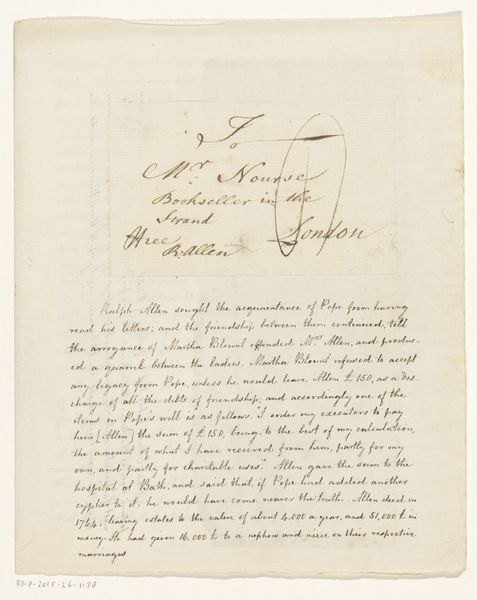 To
Mr. Nourse
Bookseller in the
Strand
Free London
R. Allen
Ralph Allen sought the acquaintance of Pope from having
read his letters; and the friendship between them continued, till
the arrogance of Martha Blount offended Mrs Allen, and produc-
ed a quarrel between the ladies. Martha Blount refused to accept
any legacy from Pope, unless he would leave Allen £150, as a dis-
charge of all the debts of friendship; and accordingly one of the
items in Pope's will is as follows. "I order my executors to pay
him [Allen] the sum of £150, being, to the best of my calculation,
the amount of what I have received from him, partly for my
own, and partly for charitable uses." Allen gave the sum to the
hospital at Bath, and said that, if Pope had added another
cypher to it, he would have come nearer the truth. Allen died in
1764; leaving estates to the value of about 4.000 a year, and 51,000 £ in
money. He had given 16,000 £ to a nephew and niece on their respective
marriages
RP-P-2015-26-1138